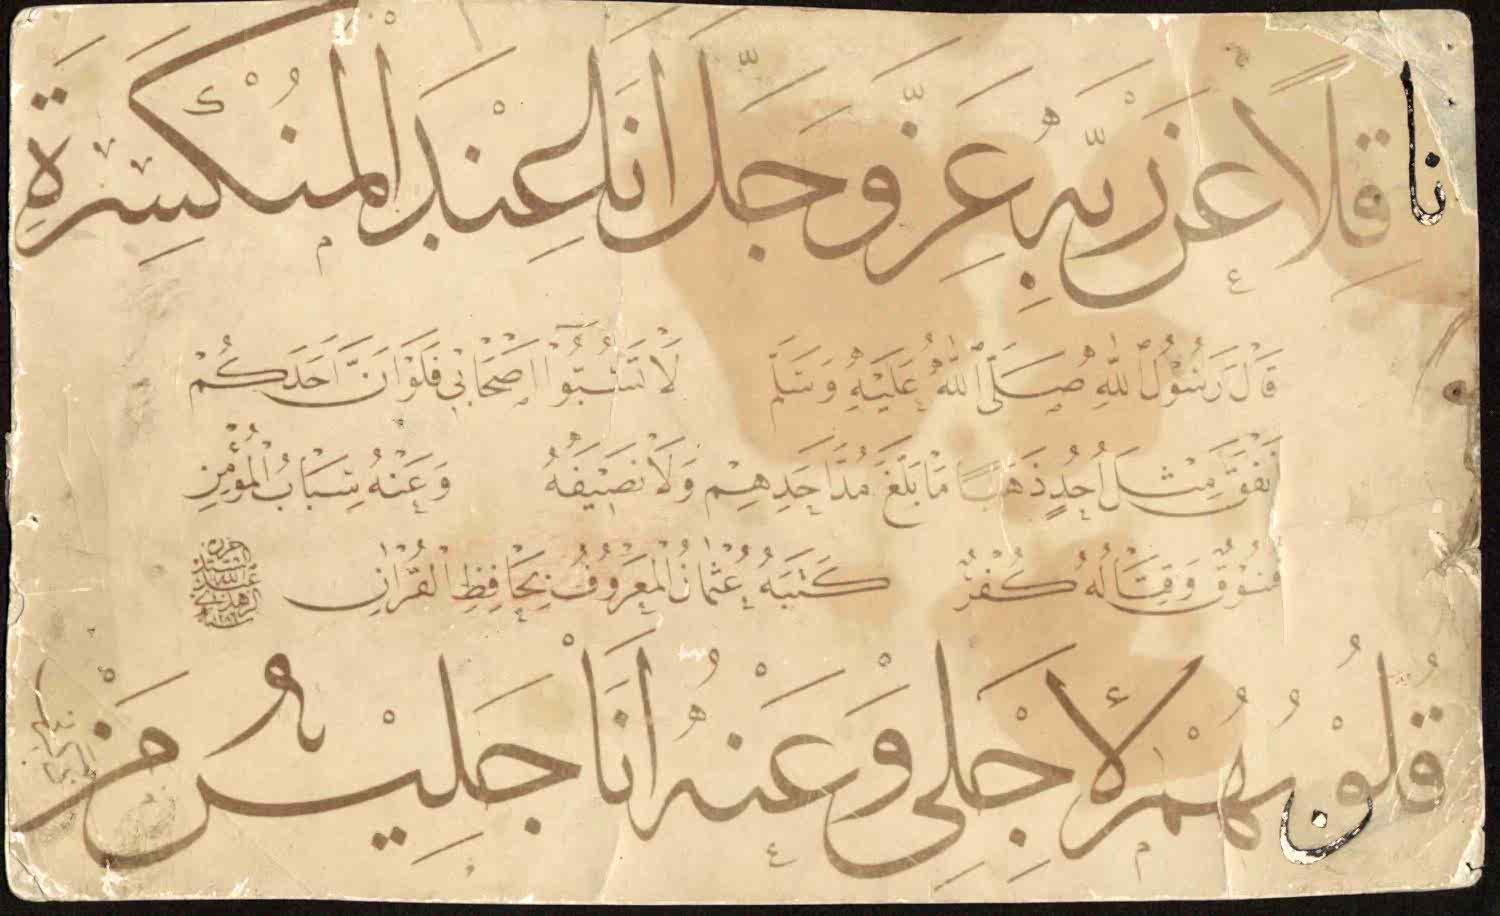 نا قلًا عَن رَبِّهِ عَزَّ وَجَلَّ اَنَا عِنْدَ الْمُنْكَسِرَةِ
قَالَ رَسُولُ اللّٰهِ صَلَّى اللّٰهُ عَلَيْهِ وَسَلَّمَ لَا تَسُبُّوا اَصْحَابِي فَلَوْ اَنَّ اَحَدَكُمْ
نْفَقَ مِثْلَ اُحُدٍ ذَهَبًا مَا بَلَغَ مُدَّ اَحَدِهِمْ وَلَا نَصِيفَهُ وَعَنْهُ سِبَابُ الْمُؤْمِنِ
فُسُوقٌ وَقِتَالُهُ كُفْرٌ كَتَبَهُ عُثْمَانُ الْمَعْرُوفُ بِحَافِظِ الْقُرْاٰنِ
قُلُوبُهُمْ لِأَجْلِي وَعَنْهُ اَنَا جَلِيسُ مَنْ